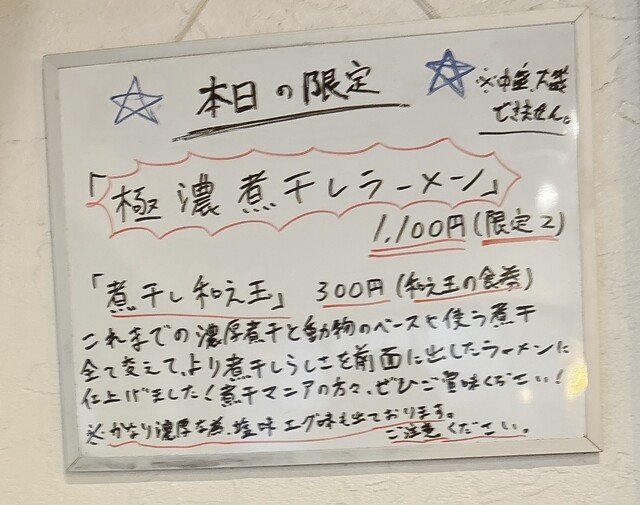 本日の限定
※中盛、大盛
できません。
「極濃煮干しラーメン」
1,100円(限定2)
「煮干し和え玉」 300円(和え玉の食券)
これまでの濃厚煮干と動物のベースと使う煮干
全て変えて、より煮干しらしさを前面に出したラーメンに
仕上げました!煮干マニアの方々、ぜひご賞味ください!
※かなり濃厚な為、塩味エグ味も出ております。
ご注意ください。